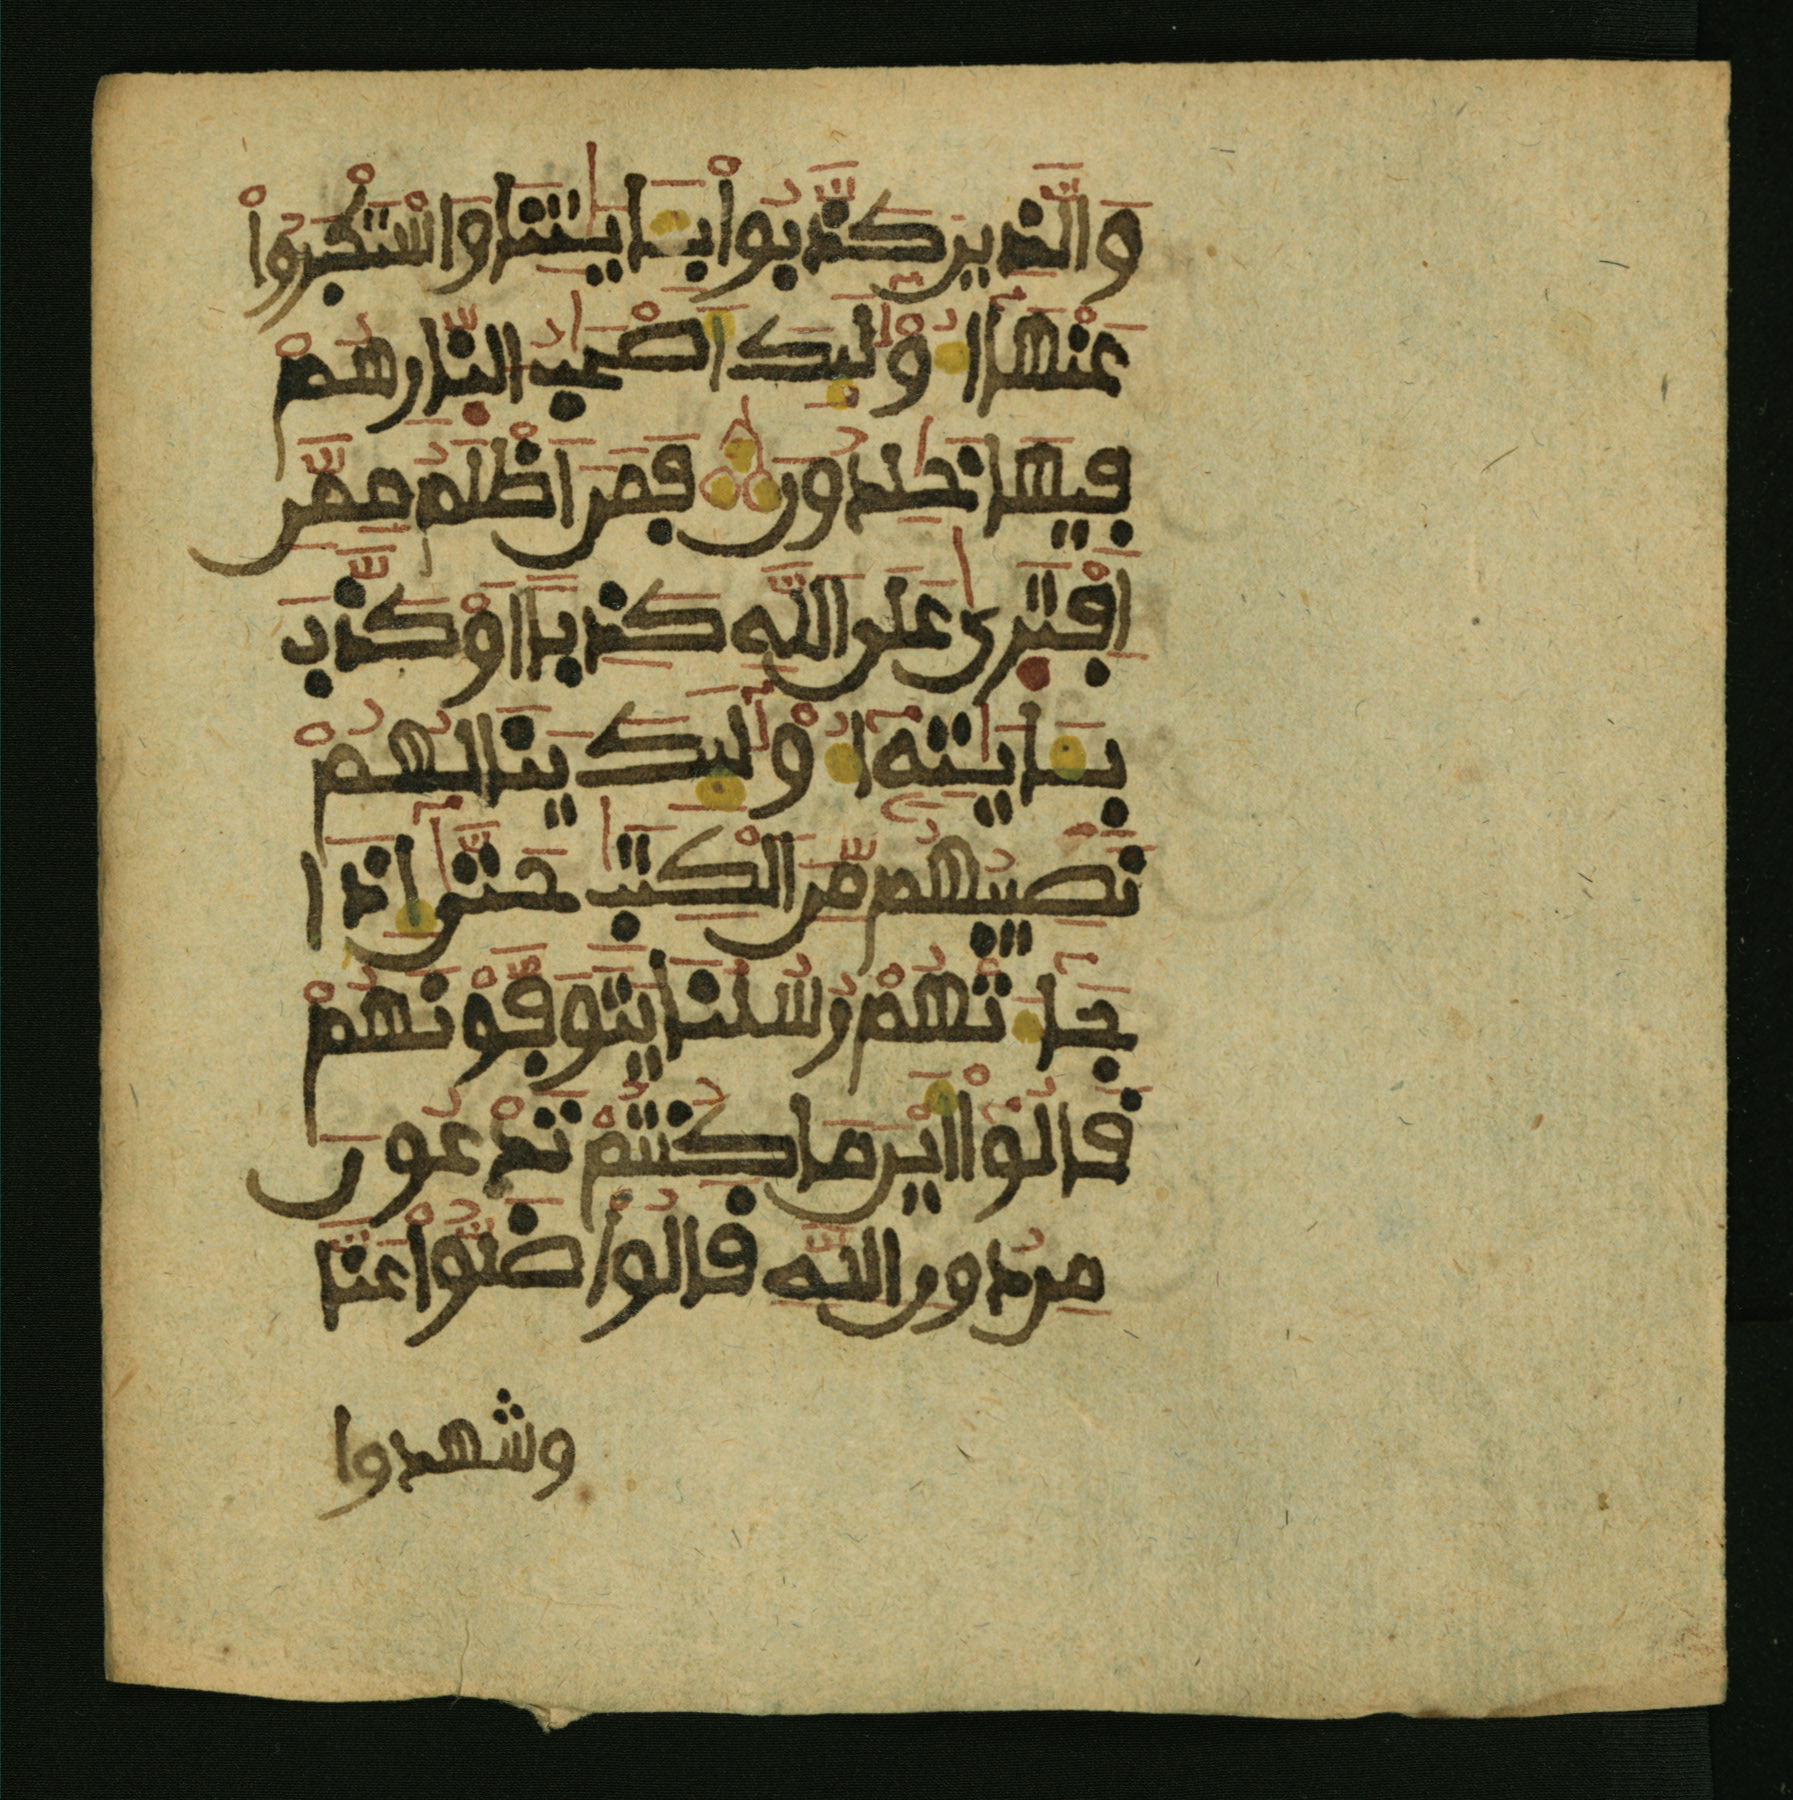 وَالَّذِينَ كَذَّبُواْ بِـَٔايَٰتِنَا وَاسْتَكْبَرُواْ
عَنْهَا أُوْلَٰٓئِكَ أَصْحَٰبُ النّارِ هُمْ
فِيهَا خَٰلِدُونَ فَمَنَ اَظْلَمُ مِمَّنِ
اِفْتَر۪ىٰ عَلَى اللَّهِ كَذِباً اَوْ كَذَّبَ
بِـَٔايَٰتِهِۦٓ أُوْلَٰٓئِكَ يَنَالُهُمْ
نَصِيبُهُم مِّنَ الْكِتَٰبِ حَتَّىٰٓ إِذَا
جَآءَتْهُمْ رُسُلُنَا يَتَوَفَّوْنَهُمْ
قَالُوٓاْ أَيْنَ مَا كُنتُمْ تَدْعُونَ
مِن دُونِ اللَّهِ قَالُواْ ضَلُّواْ عَنَّا
وشهدوا